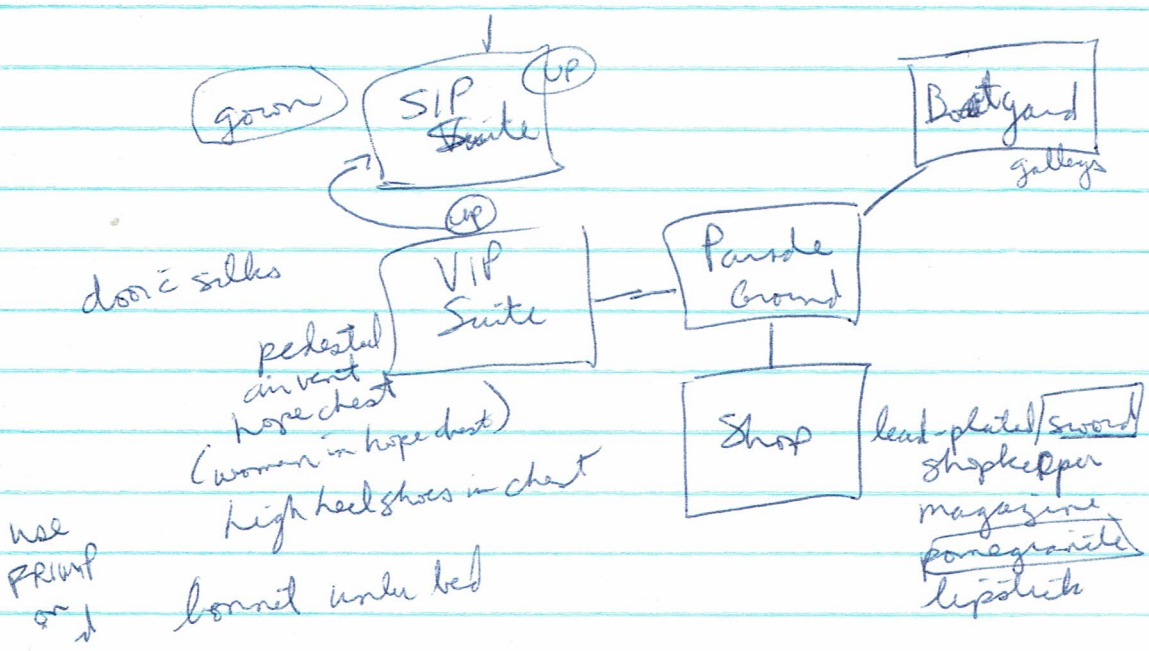 UP
gown
SIP
Suite
Boatyard
galleys
UP
VIP
Suite
Parade
Ground
door c̄ silks
pedestal
air vent
hope chest
(woman in hope chest)
high heel shoes in chest
bonnet under bed
Shop
lead-plated sword
shopkepper
magazine
pomegranite
lipstick
use
or